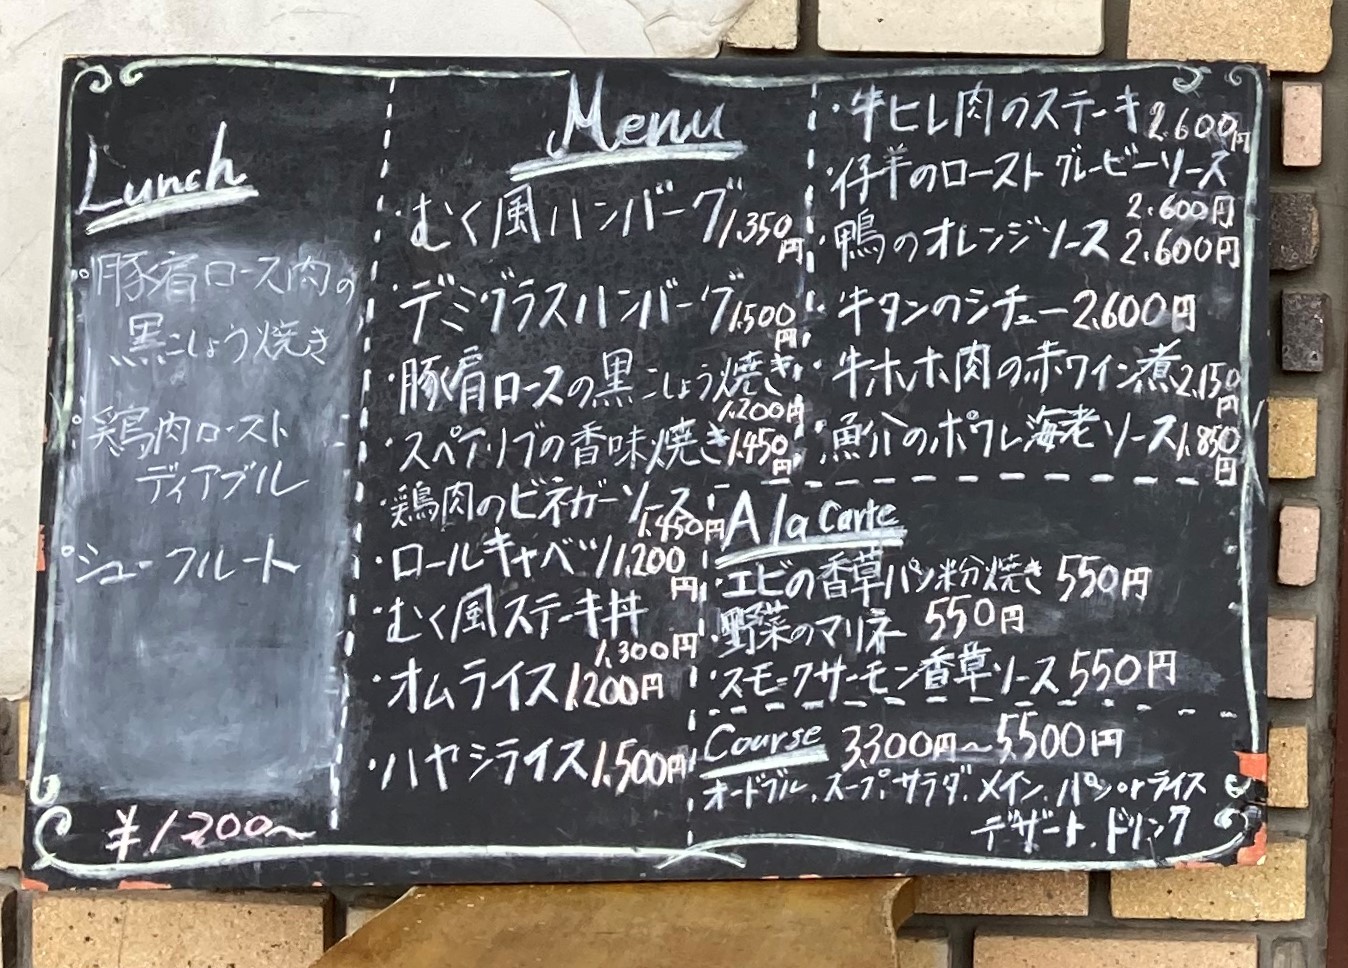 Lunch
豚肩ロース肉の
黒こしょう焼き
鶏肉ロースト
ディアブル
シューフルート
¥1200〜
Menu
・むく風ハンバーグ1.350円
・デミグラスハンバーグ1.500円
・豚肩ロースの黒こしょう焼き
1.200円
・スペアリブの香味焼き1.450円
・鶏肉のビネガーソース
1.450円
・ロールキャベツ1.200円
・むく風ステーキ丼
1.300円
・オムライス1.200円
・ハヤシライス1.500円
・牛ヒレ肉のステーキ2.600円
・仔羊のローストグレービーソース
2.600円
・鴨のオレンジソース2.600円
・牛タンのシチュー2.600円
・牛ホホ肉の赤ワイン煮2.150円
・魚介のポワレ海老ソース1.850円
A la carte
・エビの香草パン粉焼き550円
・野菜のマリネ 550円
・スモークサーモン香草ソース550円
Course 3.300円〜5.500円
オードブル.スープ.サラダ.メイン.パンorライス
デザート.ドリンク